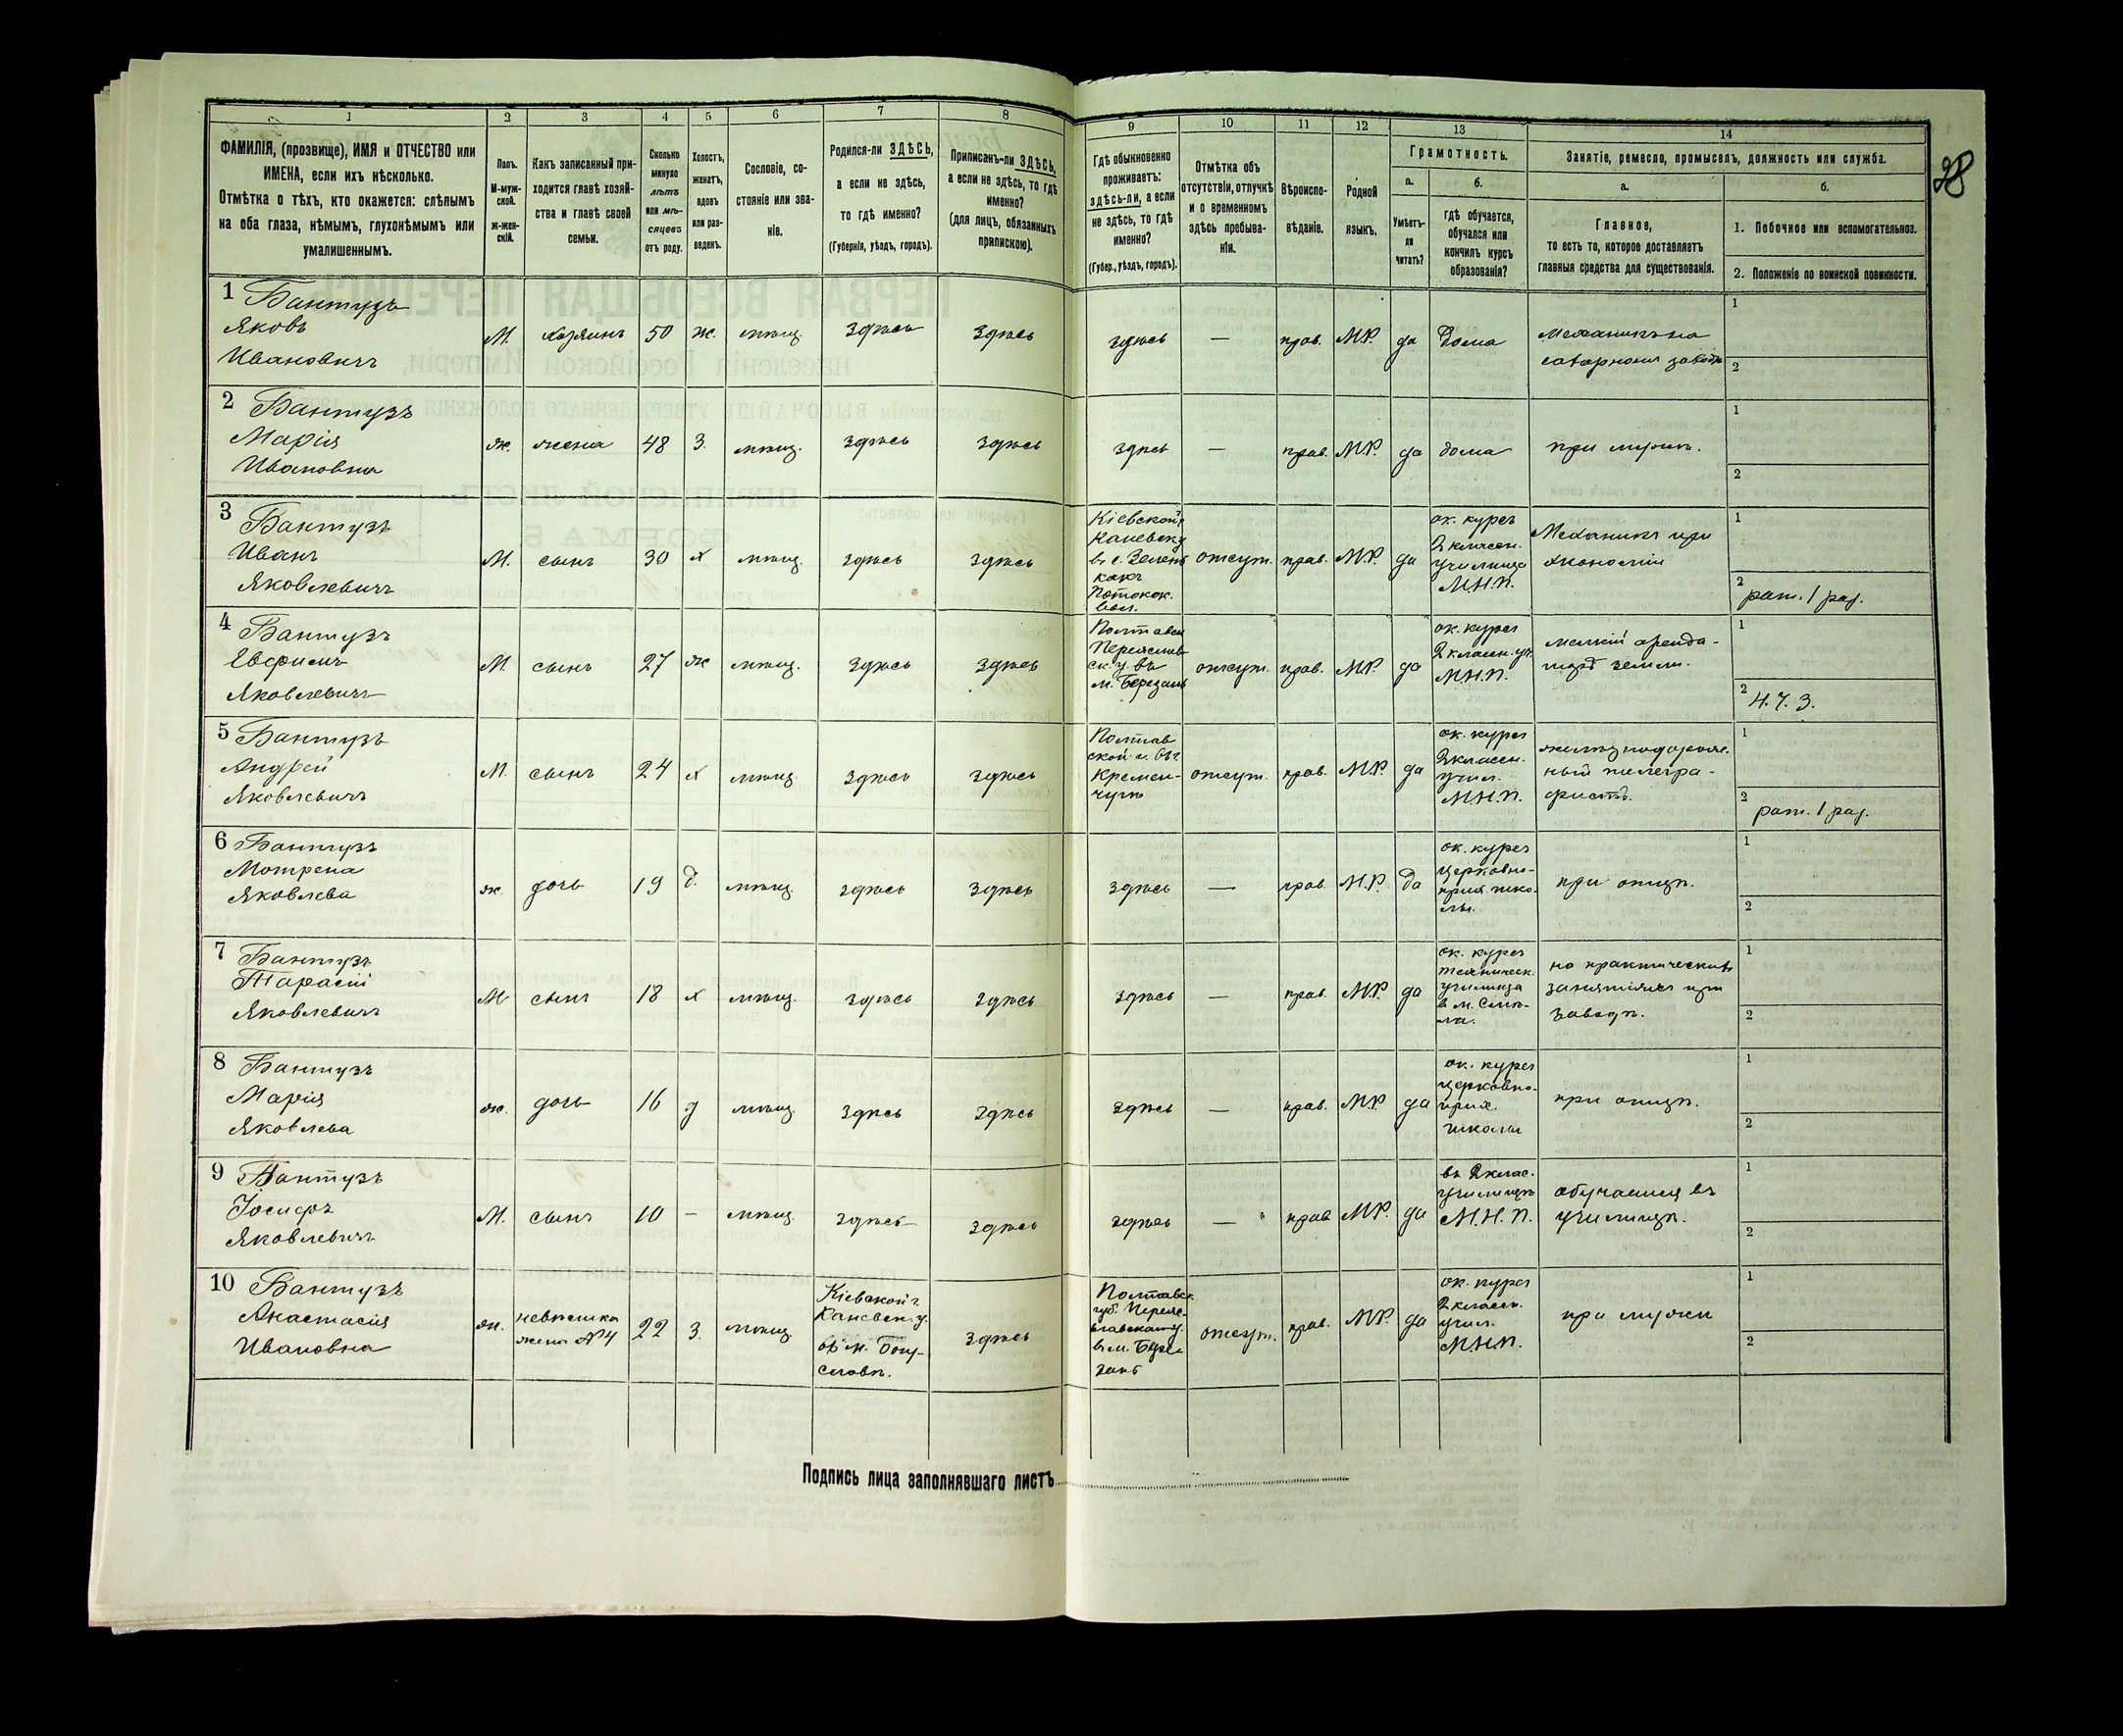 28
1 2 3 4 5 6 7 8 9 10 11 12 13 14
ФАМИЛІЯ, (прозвище), ИМЯ и ОТЧЕСТВО или
ИМЕНА, если ихъ нѣсколько.
Отмѣтка о тѣхъ, кто окажется: слѣпымъ
на оба глаза, нѣмымъ, глухонѣмымъ или
умалишеннымъ.
Полъ.
М-муж-
ской.
ж-жен-
скій.
Какъ записанный при-
ходится главѣ хозяй-
ства и главѣ своей
семьи.
Сколько
минуло
лѣтъ
или мѣ-
сяцевъ
отъ роду.
Холостъ,
женатъ,
вдовъ
или раз-
веденъ.
Сословіе, со-
стояніе или зва-
ніе.
Родился-ли ЗДѢСЬ,
а если не здѣсь,
то гдѣ именно?
(Губернія, уѣздъ, городъ).
Приписанъ-ли ЗДѢСЬ,
а если не здѣсь, то гдѣ
именно?
(для лицъ, обязанныхъ
припискою).
Гдѣ обыкновенно
проживаетъ:
здѣсь-ли, а если
не здѣсь, то гдѣ
именно?
(Губер., уѣздъ, городъ).
Отмѣтка объ
отсутствіи, отлучкѣ
и о временномъ
здѣсь пребыва-
ніи.
Вѣроиспо-
вѣданіе.
Родной
языкъ.
Грамотность.
а.
Умѣетъ-
ли
читать?
б.
гдѣ обучается,
обучался или
кончилъ курсъ
образованія?
Занятіе, ремесло, промыселъ, должность или служба.
а.
Главное,
то есть то, которое доставляетъ
главныя средства для существованія.
б.
1. Побочное или вспомогательное.
2. Положеніе по воинской повинности.
1 Бантузъ
Яковъ
Ивановичъ
М. хозяинъ 50 ж. мѣщ. здѣсь здѣсь здѣсь — прав. М.Р. да Дома
Механикъ на
сахарномъ заводѣ
1
2
2 Бантузъ
Марія
Ивановна
ж. жена 48 З. мѣщ. здѣсь здѣсь здѣсь — прав. М.Р. да дома при мужѣ.
1
2
3 Бантузъ
Иванъ
Яковлевичъ
М. сынъ 30 х мѣщ. здѣсь здѣсь
Кіевской г.
Каневск. у
въ с. Зелень
кахъ
Потокск.
вол.
отсут. прав. М.Р. да
ок. курсъ
2 классн.
училища
М.Н.П.
Механикъ при
экономіи
1
2 рат. 1 раз.
4 Бантузъ
Евфимъ
Яковлевичъ
М. сынъ 27 ж мѣщ. здѣсь здѣсь
Полтавск
Переяслав
ск. у. въ
м. Березань
отсут. прав. М.Р. да
ок. курсъ
2 классн. уч.
М.Н.П.
мелкій аренда-
торъ земли.
1
2 Н. Ч. З.
5 Бантузъ
Андрей
Яковлевичъ
М. сынъ 24 х мѣщ. здѣсь здѣсь
Полтав
ской г. въ г.
Кремен-
чугѣ
отсут. прав. М.Р. да
ок. курсъ
2 классн.
учил.
М.Н.П.
желѣзнодорож-
ный телегра-
фистъ.
1
2 рат. 1 раз.
6 Бантузъ
Мотрена
Яковлева
ж. дочь 19 д. мѣщ. здѣсь здѣсь здѣсь — прав. М.Р. да
ок. курсъ
церковно-
прих. шко-
лы.
при отцѣ.
1
2
7 Бантузъ
Тарасій
Яковлевичъ
М сынъ 18 х мѣщ. здѣсь здѣсь здѣсь — прав. М.Р. да
ок. курсъ
техническ.
училища
въ м. Смѣ-
лѣ.
на практическихъ
занятіяхъ при
заводѣ.
1
2
8 Бантузъ
Марія
Яковлева
ж. дочь 16 д мѣщ. здѣсь здѣсь здѣсь — прав. М.Р да
ок. курсъ
церковно-
прих.
школы
при отцѣ.
1
2
9 Бантузъ
Іосифъ
Яковлевичъ
М. сынъ 10 — мѣщ. здѣсь здѣсь здѣсь — прав М.Р. да
въ 2 клас.
училищѣ
М.Н.П.
обучается въ
училищѣ.
1
2
10 Бантузъ
Анастасія
Ивановна
ж.
невѣстка
жена №4
22 З. мѣщ.
Кіевской г.
Каневск. у.
въ м. Богу-
славѣ.
здѣсь
Полтавск.
губ. Переяс-
лавскаго у.
въ м. Бере-
зань
отсут. прав. М.Р. да
ок. курсъ
2 классн.
учил.
М.Н.П.
при мужѣ
1
2
Подпись лица заполнявшаго листъ